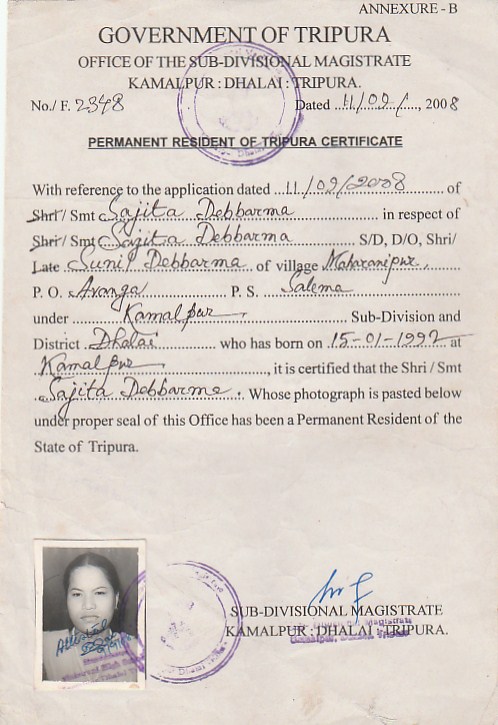 ANNEXURE - B
GOVERNMENT OF TRIPURA
OFFICE OF THE SUB-DIVISIONAL MAGISTRATE
KAMALPUR : DHALAI : TRIPURA.
No./ F. 2348 Dated 11/02/, 2008
PERMANENT RESIDENT OF TRIPURA CERTIFICATE
With reference to the application dated 11/02/2008 of
Shri / Smt Sajita Debbarma in respect of
Shri / Smt Sajita Debbarma S/D, D/O, Shri/
Late Sunil Debbarma of village Maharanipur.
P. O. Avanga P. S. Salema
under Kamalpur Sub-Division and
District Dhalai who has born on 15-01-1992 at
Kamalpur, it is certified that the Shri / Smt
Sajita Debbarma. Whose photograph is pasted below
under proper seal of this Office has been a Permanent Resident of the
State of Tripura.
Attested
SUB-DIVISIONAL MAGISTRATE
KAMALPUR : DHALAI : TRIPURA.